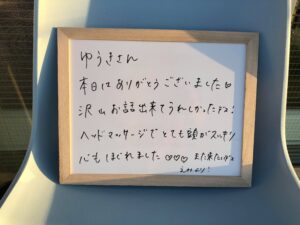 ゆうきさん
本日はありがとうございました♡
沢山お話出来てうれしかったです!
ヘッドマッサージでとても頭がスッキリ
心もほぐれました♡♡♡ また来たいです
より!